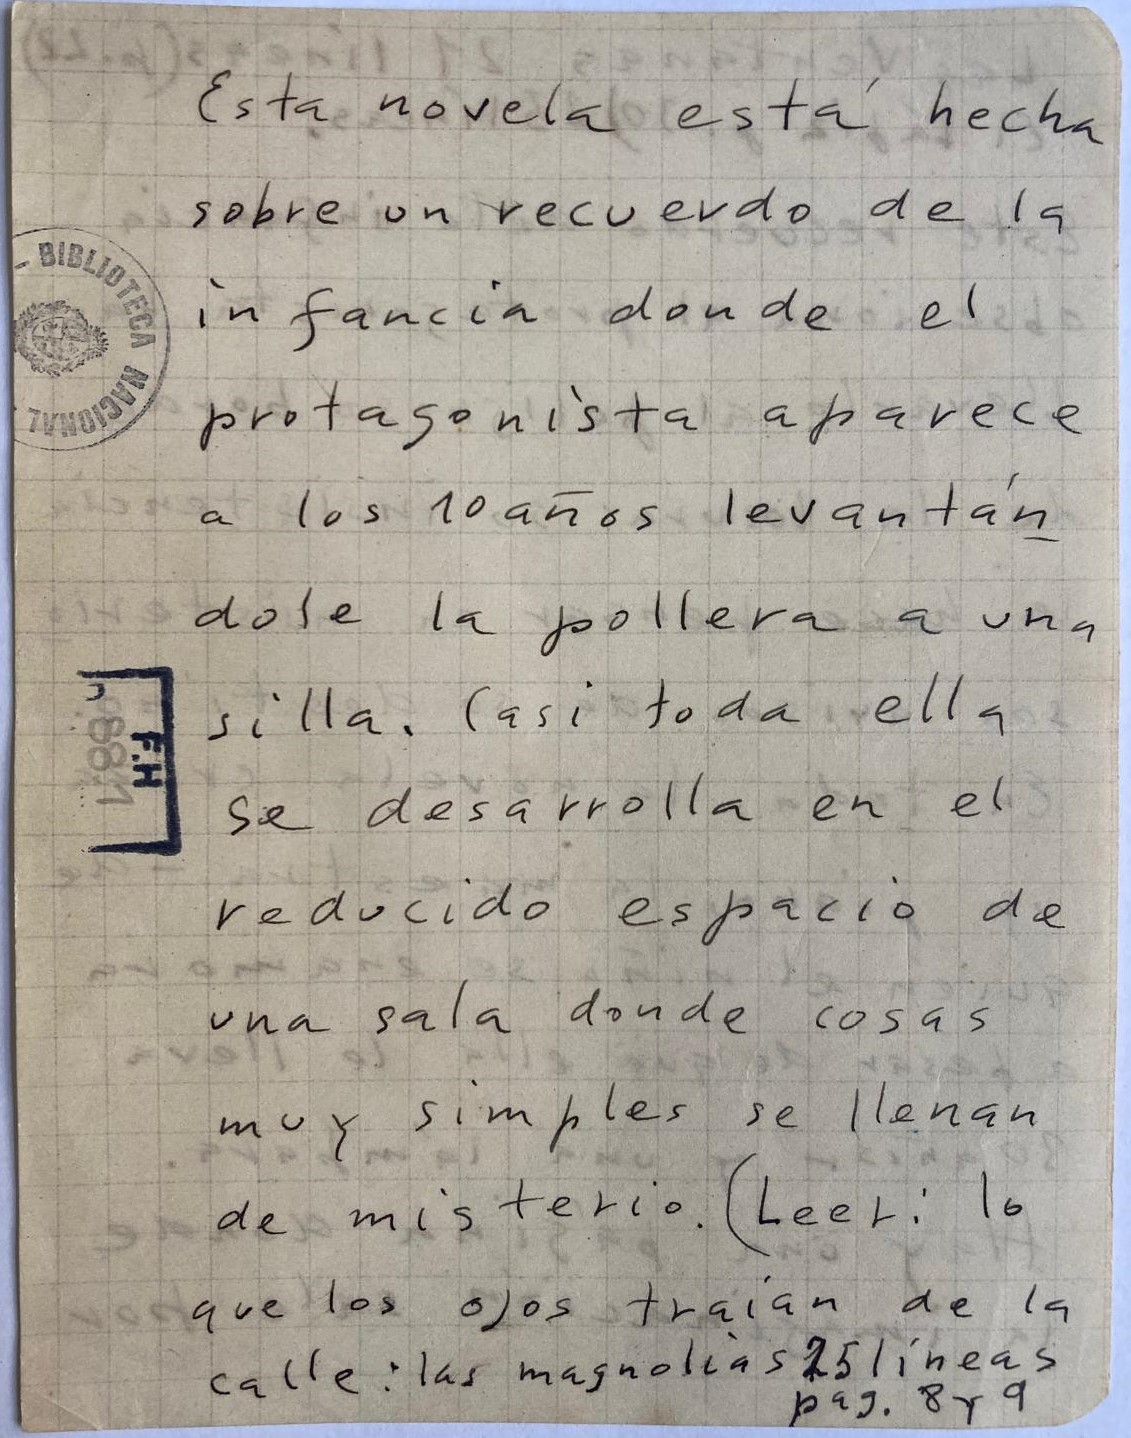 Esta novela está hecha
sobre un recuerdo de la
infancia donde el
protagonista aparece
a los 10 años levantán
dole la pollera a una
silla. Casi toda ella
se desarrolla en el
reducido espacio de
una sala donde cosas
muy simples se llenan
de misterio. (Leer: lo
que los ojos traían de la
calle: las magnolias 25 líneas
pag. 8 y 9
- BIBLIOTECA NACIONAL -
F.H